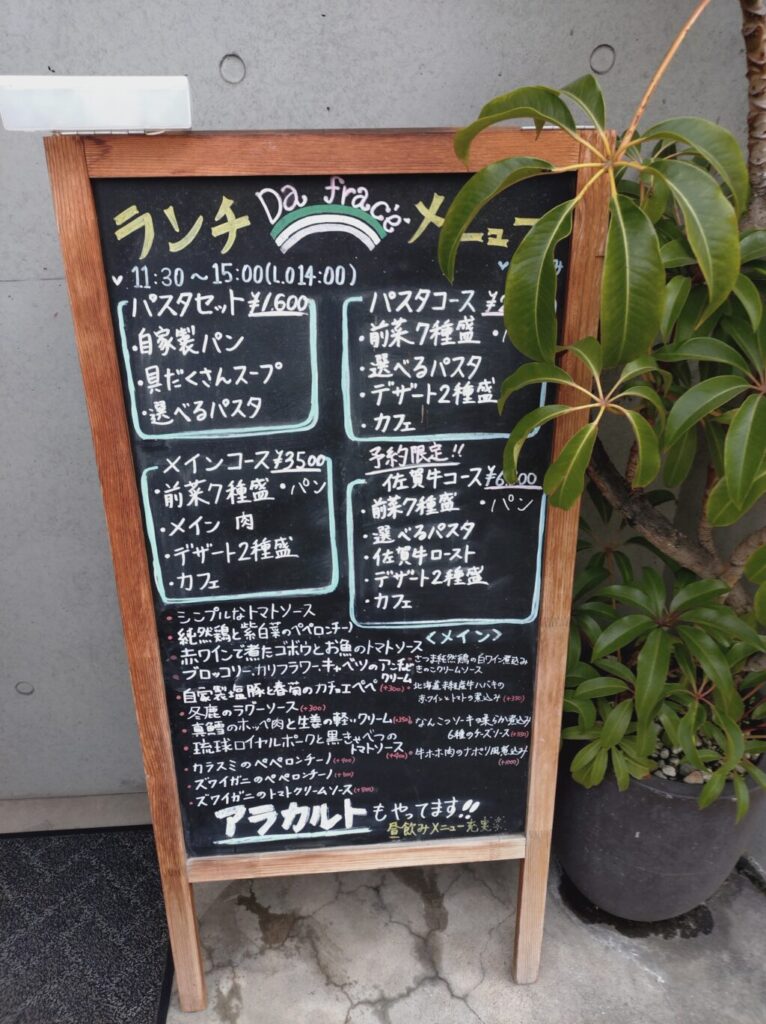 Da frace
ランチ メニュー
♥ 11:30〜15:00(L.O14:00)
パスタセット ¥1.600
・自家製パン
・具だくさんスープ
・選べるパスタ
パスタコース
・前菜7種盛
・選べるパスタ
・デザート2種盛
・カフェ
メインコース ¥3500
・前菜7種盛 ・パン
・メイン 肉
・デザート2種盛
・カフェ
予約限定!!
佐賀牛コース
・前菜7種盛 ・パン
・選べるパスタ
・佐賀牛ロースト
・デザート2種盛
・カフェ
・シンプルなトマトソース
・純然鶏と紫白菜のペペロンチーノ
・赤ワインで煮たゴボウとお魚のトマトソース
・ブロッコリー、カリフラワー、キャベツのアンチョビクリーム
・自家製塩豚と春菊のカチョエペペ (+300)
・冬鹿のラグーソース (+300)
・真鱈のホッペ肉と生姜の軽いクリーム
・琉球ロイヤルポークと黒きゃべつのトマトソース (+400)
・カラスミのペペロンチーノ (+400)
・ズワイガニのペペロンチーノ
・ズワイガニのトマトクリームソース
<メイン>
さつま純然鶏の白ワイン煮込み
きのこクリームソース
・北海道 牛ハバキの
赤ワインとトマトの煮込み
・なんこつソーキの柔らか煮込み
6種のチーズソース
・牛ホホ肉のナポリ風煮込み
(+1000)
アラカルトもやってます!!
昼飲みメニュー充実